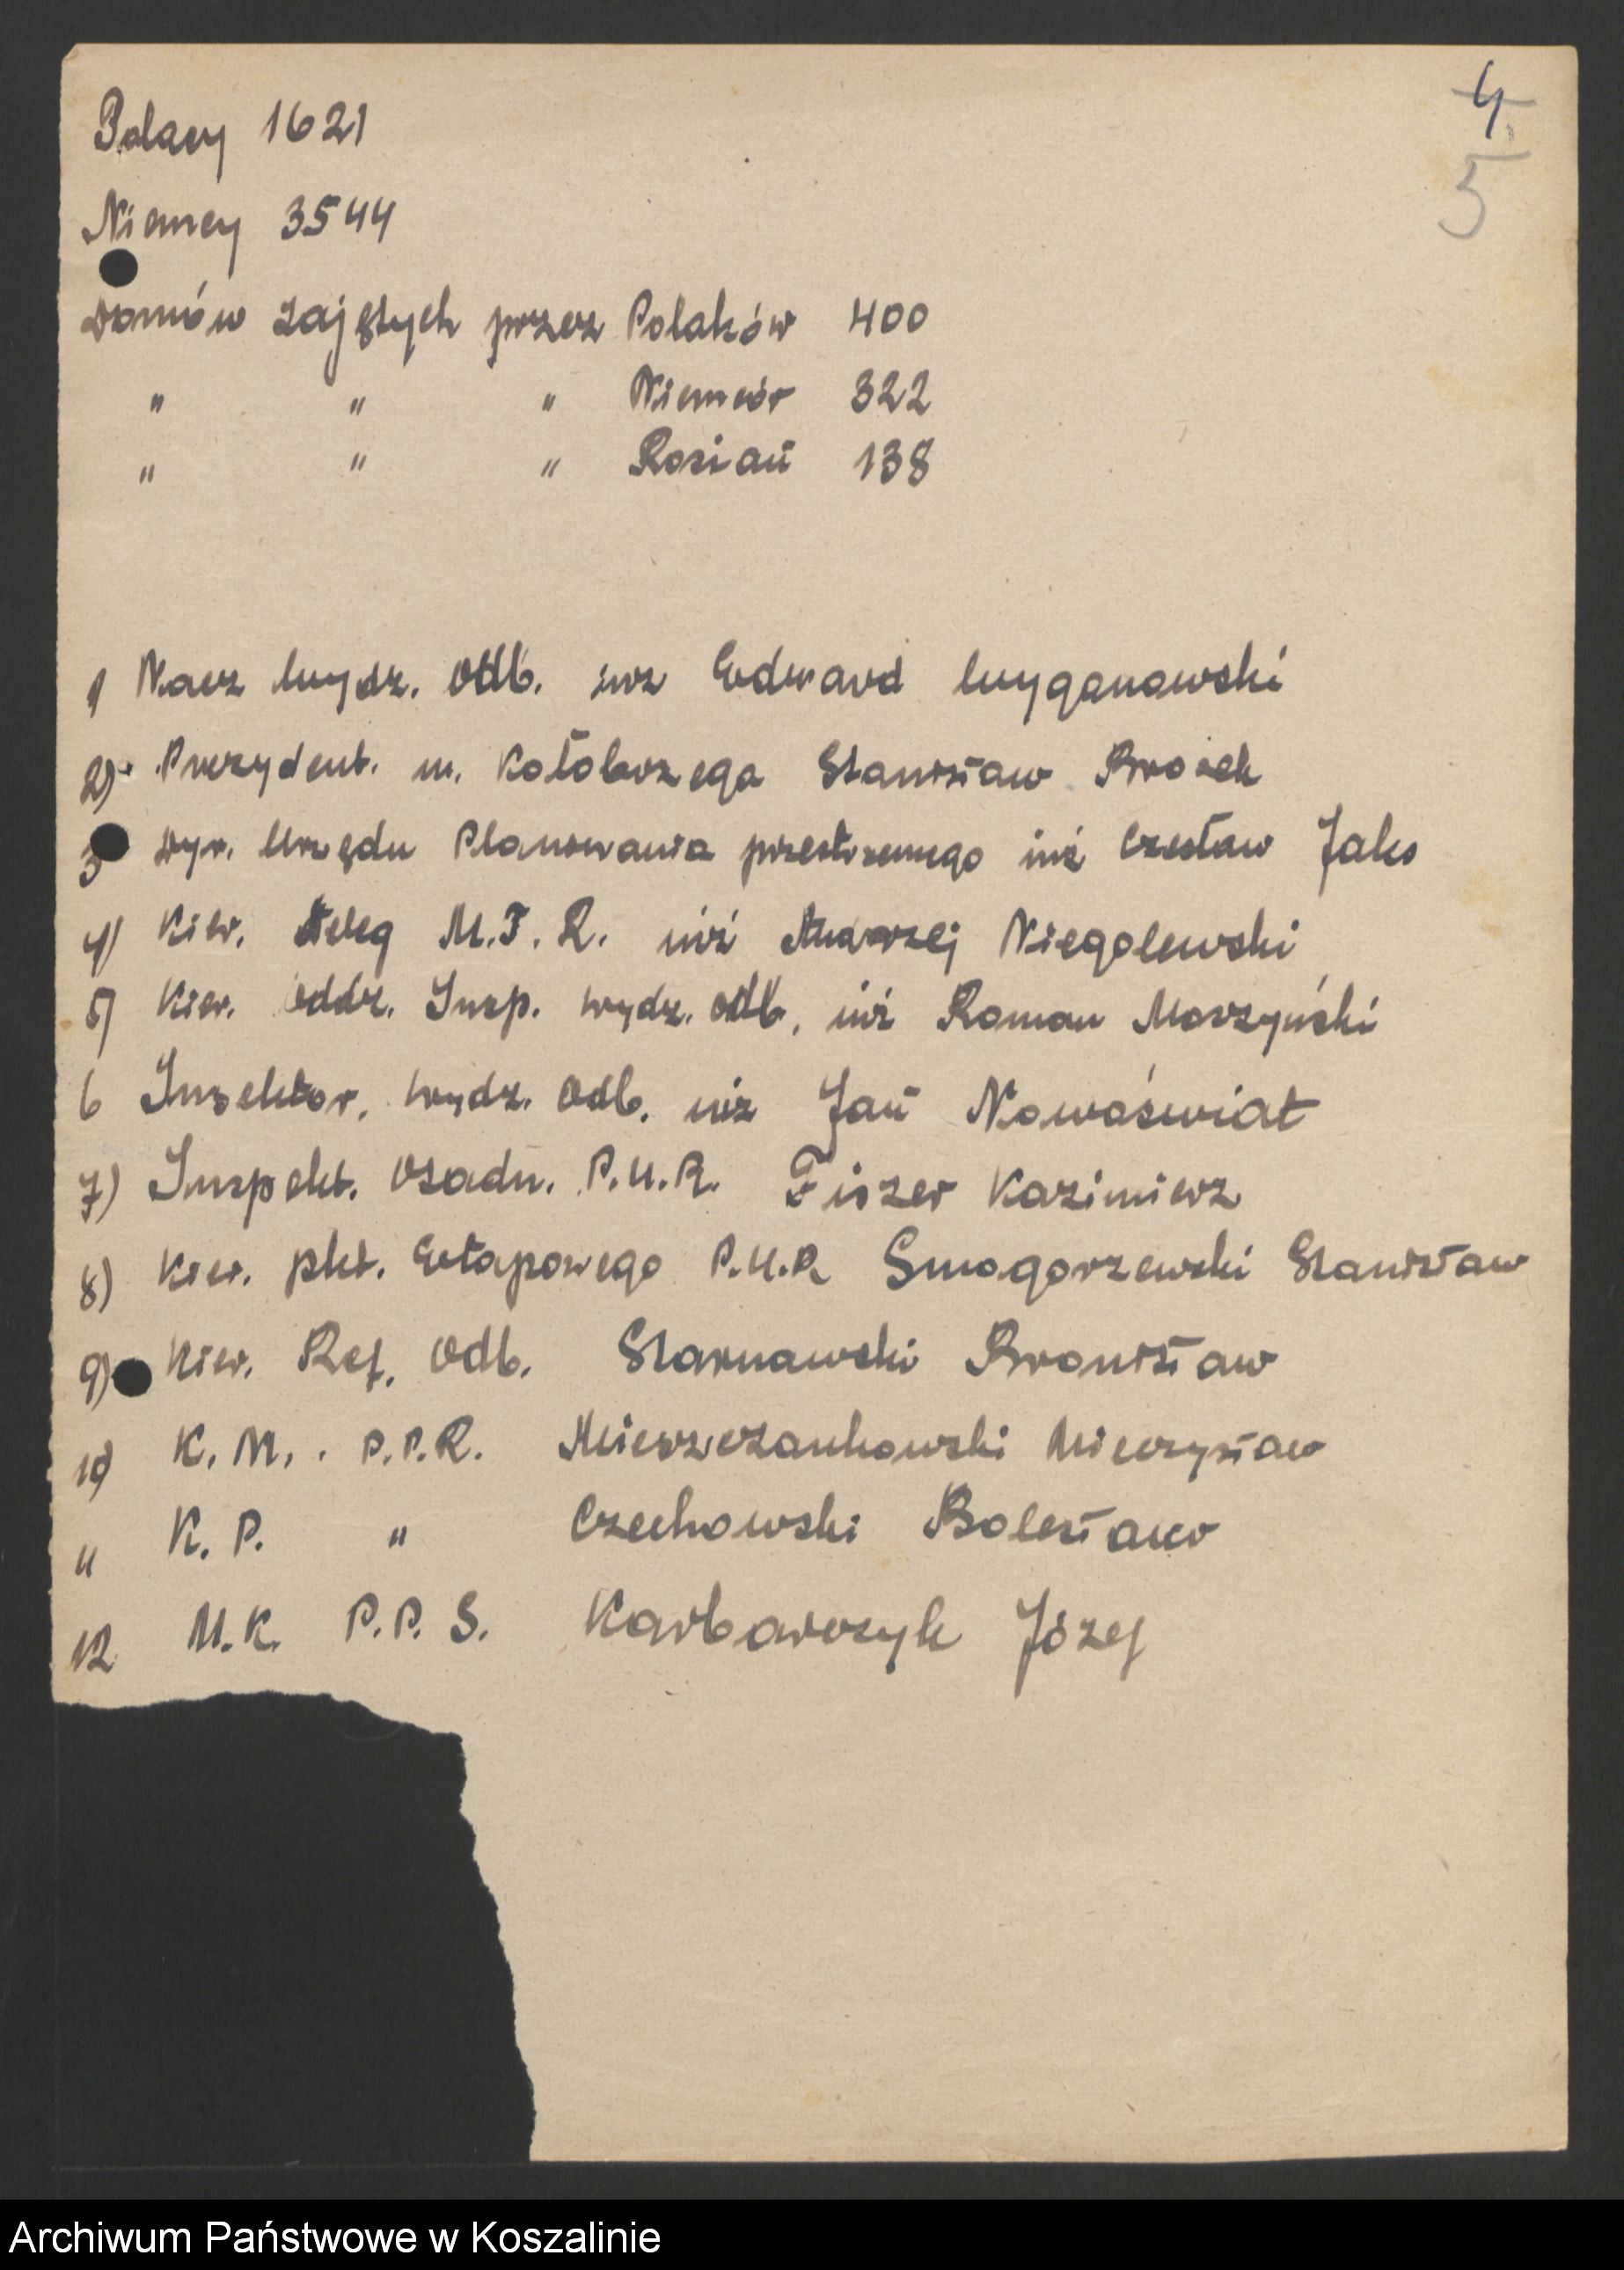 4
5
Polacy 1621
Niemcy 3544
Domów zajętych przez Polaków 400
" " " Niemców 322
" " " Rosian 138
1 Nacz Wydz. Odb. inż Edward Wyganowski
2) Prezydent. m. Kołobrzega Stanisław
3 Dyr. Urzędu Planowania przestrzennego inż Czesław
4) Kier. Deleg M.T.R. inż Andrzej Niegolewski
5) Kier. Oddz. Insp. Wydz. Odb. inż Roman Morzyński
6 Inspektor, Wydz. Odb. inż Jan Nowoświat
7) Inspekt. Osadn. P.U.R. Fiszer Kazimierz
8) Kier. pkt. Etapowego P.U.R Smogorzewski Stanisław
9) Kier. Ref. Odb. Starnawski Bronisław
10) K. M. P.P.R. Mieszczankowski Mieczysław
11 K. P. " Czechowski Bolesław
12 M.K. P.P.S. Karbarczyk Józef
Archiwum Państwowe w Koszalinie